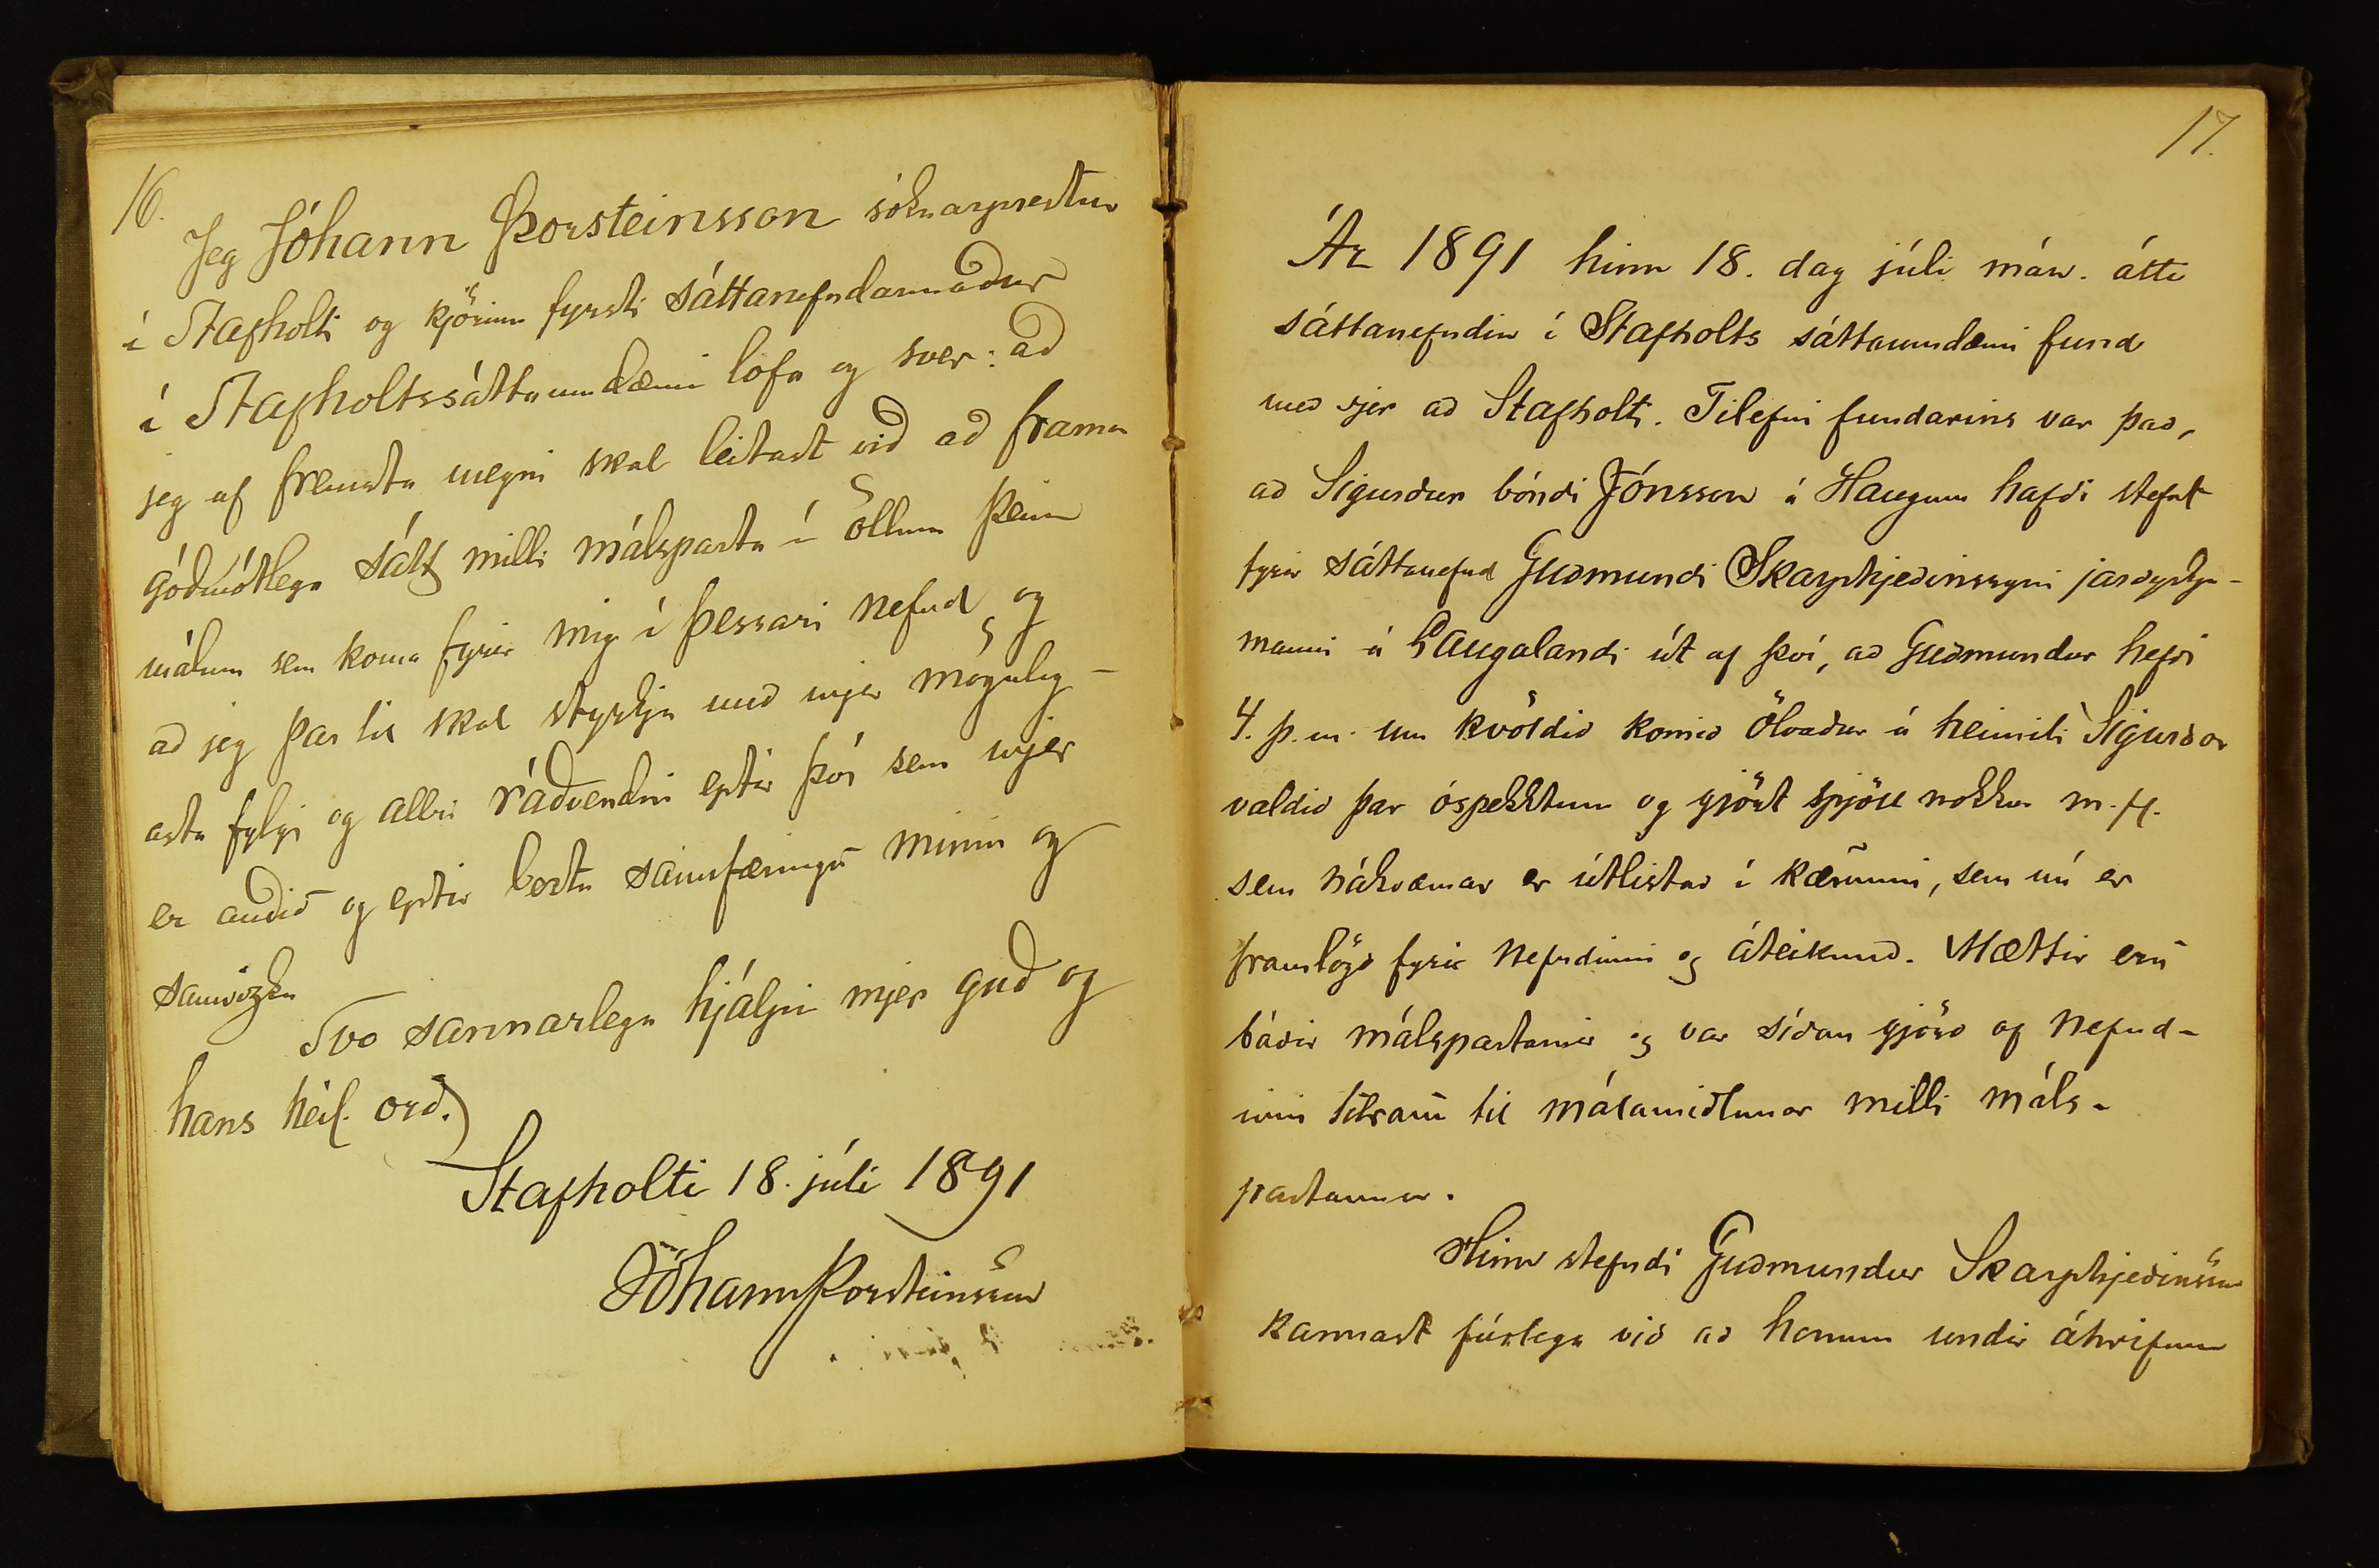 16.
Jeg Jóhann Þorsteinsson sóknarprestur
í Stafholti og kjörinn fyrsti sáttanefndarmaður
í Stafholtssáttaumdæmi lofa og sver: að
jeg af fremsta megni skal leitast við að frama
góðmótlega sátt milli málsparta í öllum þeim
málum sem koma fyrir mig í þessari nefnd, og
að jeg þar til skal styrkja með mjer möguleg-
asta fylgi og allri ráðvendni eptir því sem mjer
er auðið og eptir bestu sannfæringu minni og
samvizku
Svo sannarlega hjálpi mjer guð og
hans heil. orð.
Stafholti 18. júli 1891
Jóhann Þorsteinsson
17.
Ár 1891 hinn 18. dag júli mán. átti
sáttanefndin í Stafholts sáttaumdæmi fund
með sjer að Stafholti. Tilefni fundarins var það,
að Sigurður bóndi Jónsson á Haugum hafði stefnt
fyrir sáttanefnd Guðmundi Skarphjeðinssyni jarðyrkju-
manni á Laugalandi út af því, að Guðmundur hefði
4. þ.m. um kvöldið komið ölvaður á heimili Sigurðar
valdið þar óspekktum og gjört spjöll nokkur m.fl.
sem nákvæmar er útlistað í kærunni, sem nú er
framlögð fyrir nefndinni og áteiknuð. Mættir eru
báðir málspartarnir og var síðan gjörð af nefnd-
inni tilraun til málamiðlunar milli máls-
partanna.
Hinn stefndi Guðmundur Skarphjeðinsson
kannast fúslega við að honum undir áhrifum